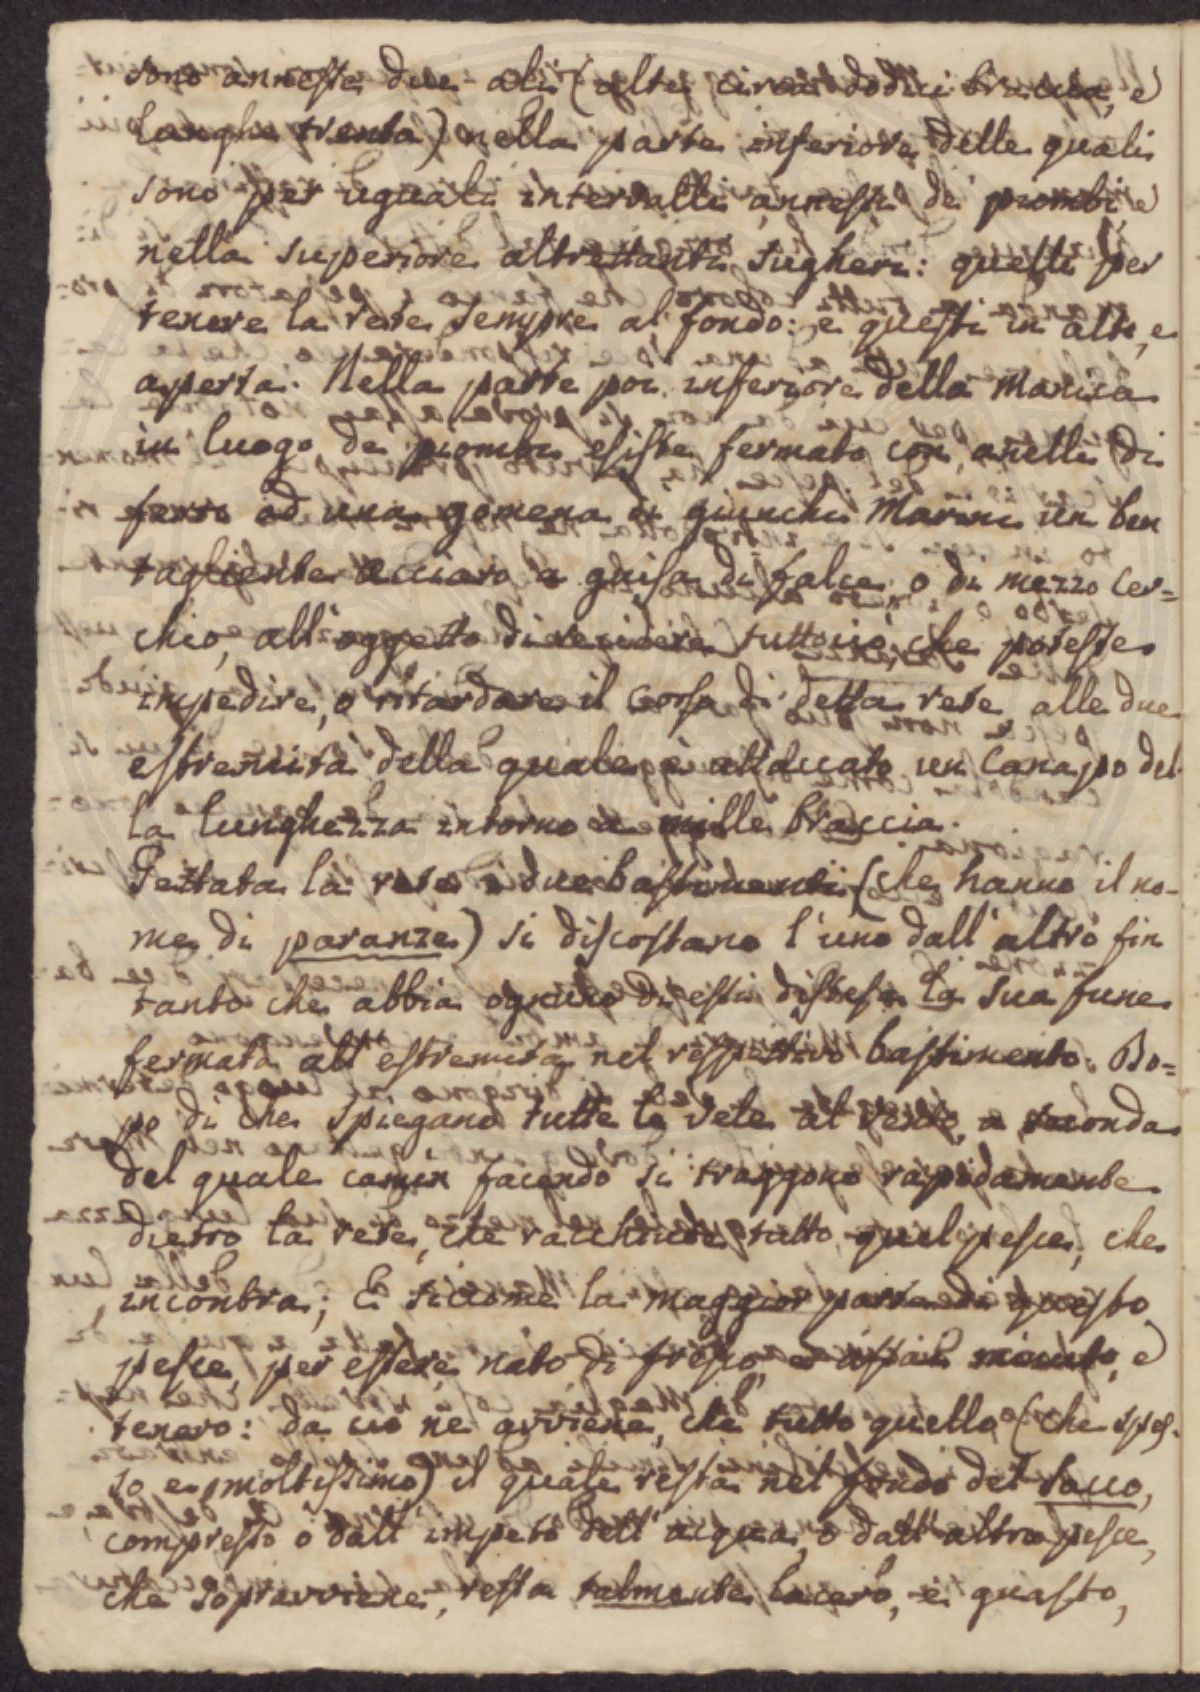 sono annesse due ali (alte circa dodici braccia, e
lunghe trenta) nella parte inferiore delle quali
sono per uguali intervalli annessi de' piombi, e
nella superiore altrettanti sugheri: quelli per
tenere la rete sempre al fondo: e questi in alto, e
aperta. Nella parte poi inferiore della Manica
in luogo de' piombi esiste fermato con anelli di
ferro ad una gomena di giunchi Marini un ben
tagliente acciaro a guisa di falce, o di mezzo cer=
chio, all'oggetto di recidere tuttociò, che potesse
impedire, o ritardare il corso di detta rete alle due
estremità della quale è attaccato un Canapo del-
la lunghezza intorno a mille braccia.
Gettata la rete i due bastimenti (che hanno il no-
me di paranze) si discostano l'uno dall'altro fin
tanto che abbia ognuno di essi distesa la sua fune
fermata all'estremità nel respettivo bastimento. Do=
po di che spiegano tutte le vele al vento, a seconda
del quale camin facendo si traggono rapidamente
dietro la rete, che racchiude tutto quel pesce, che
incontra; E siccome la maggior parte di questo
pesce, per essere nato di fresco, è assai minuto, e
tenero: da ciò ne avviene, che tutto quello (che spes-
so è moltissimo) il quale resta nel fondo del sacco,
compresso o dall'impeto dell'acqua, o dall'altro pesce,
che sopravviene, resta talmente lacero, e guasto,